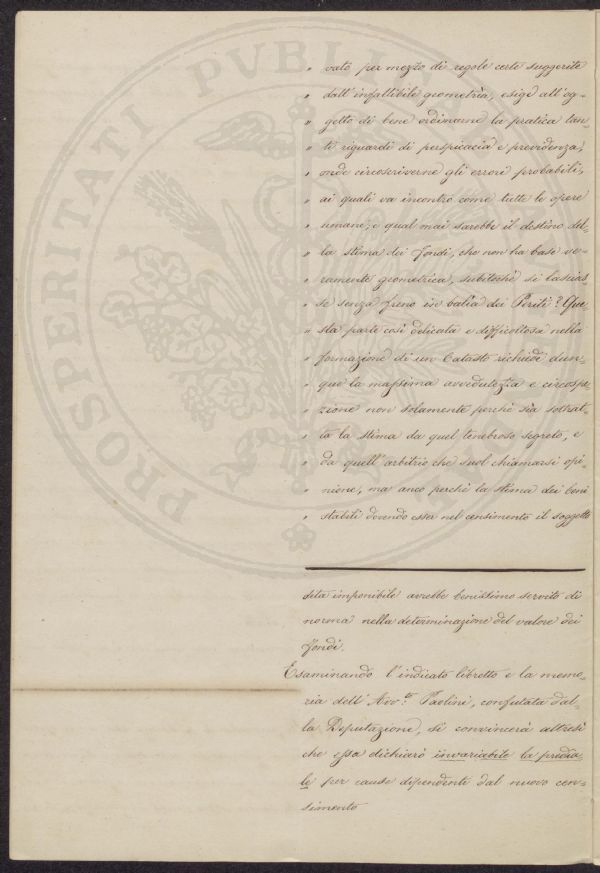 PROSPERITATI PVBLI
" vato per mezzo di regole certe suggerite
" dall'infallibile geometria, esige all'og-
" getto di bene ordinarne la pratica tan-
" ti riguardi di perspicacia e previdenza,
" onde circoscriverne gli errori probabili,
" ai quali va incontro come tutte le opere
" umane; e qual mai sarebbe il destino del-
" la stima dei fondi, che non ha base ve-
" ramente geometrica, subitochè si lascias-
" se senza freno in balìa dei Periti? Que-
" sta parte così delicata e difficoltosa nella
" formazione di un Catasto richiede dun-
" que la massima avvedutezza e circospe-
" zione non solamente perchè sia sottrat-
" ta la stima da quel tenebroso segreto, e
" da quell'arbitrio che suol chiamarsi opi-
" nione, ma anco perchè la stima dei beni
" stabili dovendo esser nel censimento il soggetto
dita imponibile avrebbe benissimo servito di
norma nella determinazione del valore dei
fondi.
Esaminando l'indicato libretto e la memo-
ria dell'Avv.to Paolini, confutata dal-
la Deputazione, si convincerà altresì
che essa dichiarò invariabile la predia-
le per cause dipendenti dal nuovo cen-
simento